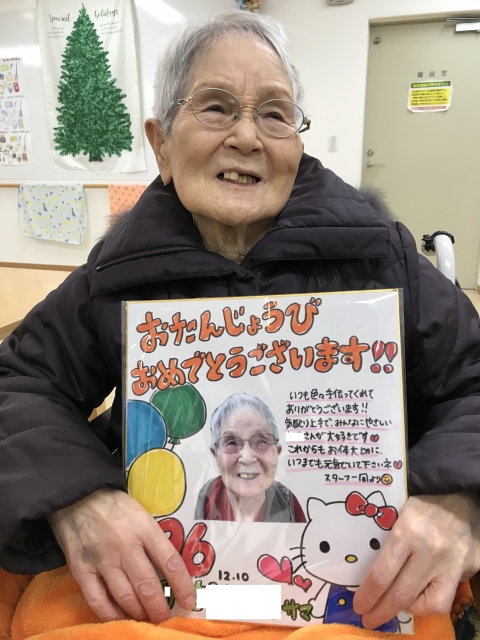 Special holidays
階段室
おたんじょうび
おめでとうございます!!
いつも色々手伝ってくれて
ありがとうございます!!
気配り上手で、みんなにやさしい
さんが大好きです
これからもお体大切に、
いつまでも元気でいて下さいネ
スタッフ一同より
96
12.10
サマ